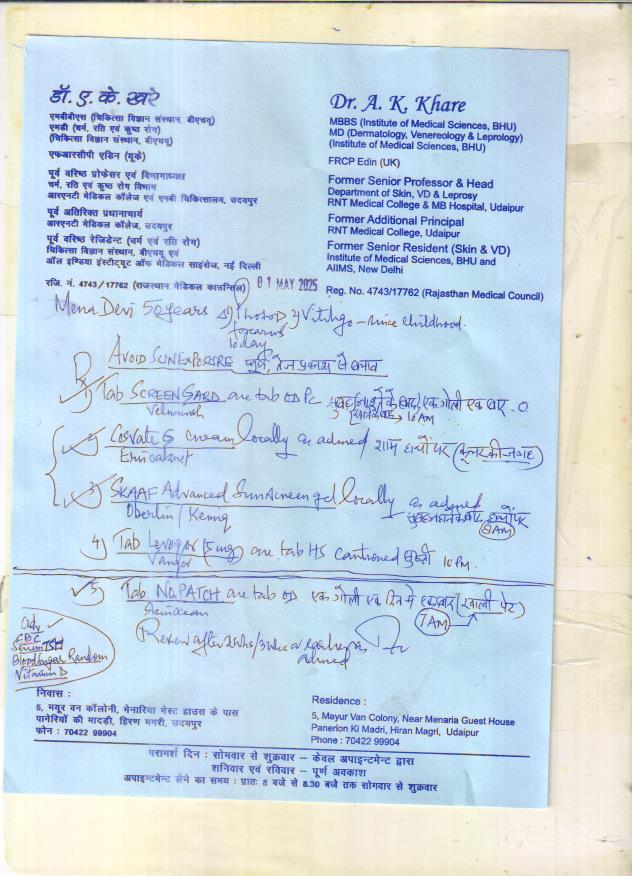 डॉ. ए. के. खरे
एमबीबीएस (चिकित्सा विज्ञान संस्थान, बीएचयू)
एमडी (चर्म, रति एवं कुष्ठ रोग)
(चिकित्सा विज्ञान संस्थान, बीएचयू)
एफआरसीपी एडिन (यूके)
पूर्व वरिष्ठ प्रोफेसर एवं विभागाध्यक्ष
चर्म, रति एवं कुष्ठ रोग विभाग
आरएनटी मेडिकल कॉलेज एवं एमबी चिकित्सालय, उदयपुर
पूर्व अतिरिक्त प्रधानाचार्य
आरएनटी मेडिकल कॉलेज, उदयपुर
पूर्व वरिष्ठ रेजिडेन्ट (चर्म एवं रति रोग)
चिकित्सा विज्ञान संस्थान, बीएचयू एवं
ऑल इण्डिया इंस्टीट्यूट ऑफ मेडिकल साइंसेज, नई दिल्ली
रजि. नं. 4743/17762 (राजस्थान मेडिकल काउन्सिल)
Dr. A. K. Khare
MBBS (Institute of Medical Sciences, BHU)
MD (Dermatology, Venereology & Leprology)
(Institute of Medical Sciences, BHU)
FRCP Edin (UK)
Former Senior Professor & Head
Department of Skin, VD & Leprosy
RNT Medical College & MB Hospital, Udaipur
Former Additional Principal
RNT Medical College, Udaipur
Former Senior Resident (Skin & VD)
Institute of Medical Sciences, BHU and
AIIMS, New Delhi
Reg. No. 4743/17762 (Rajasthan Medical Council)
01 MAY 2025
Mena Devi 50 years 2) Vitiligo - since childhood.
forearms
AVOID SUN EXPOSURE धूप, तेज प्रकाश से बचाव
1) Tab SCREENGARD one tab OD PC एक गोली एक बार
10 AM
2) Cosvate G cream locally as advised शाम
3) SKAAF Advanced Sunscreen gel locally as advised
8AM
4) Tab Levogar (5 mg) one tab HS 10 P.M.
5) Tab. NuPATCH one tab OD एक गोली एक दिन में एक बार (खाली पेट)
7 AM
Review after 2 wks/3 wks
advised
Adv
CBC
Serum TSH
Blood Sugar Random
Vitamin D
निवास :
5, मयूर वन कॉलोनी, मेनारिया गेस्ट हाउस के पास
पानेरियों की मादड़ी, हिरण मगरी, उदयपुर
फोन : 70422 99904
Residence :
5, Mayur Van Colony, Near Menaria Guest House
Panerion Ki Madri, Hiran Magri, Udaipur
Phone : 70422 99904
परामर्श दिन : सोमवार से शुक्रवार – केवल अपाइन्टमेन्ट द्वारा
शनिवार एवं रविवार – पूर्ण अवकाश
अपाइन्टमेन्ट लेने का समय : प्रातः 8 बजे से 8.30 बजे तक सोमवार से शुक्रवार